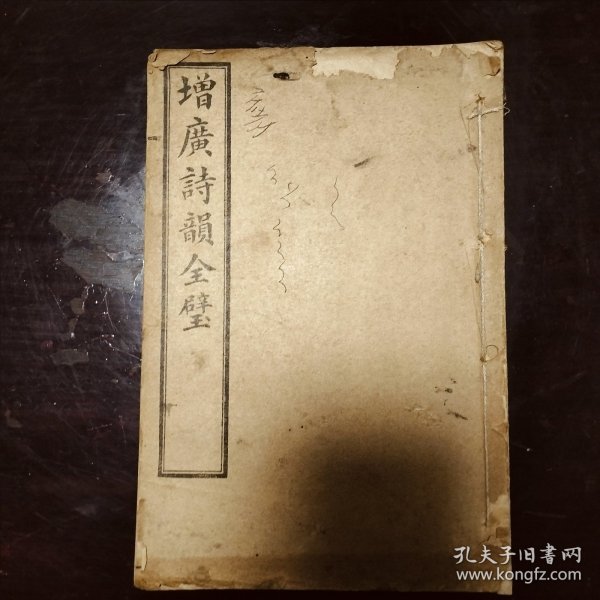 增廣詩韻全璧
孔夫子旧書网
www.kongfz.com